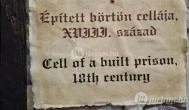 Épített börtön cellája,
XVIII. század
Cell of a built prison,
18th century